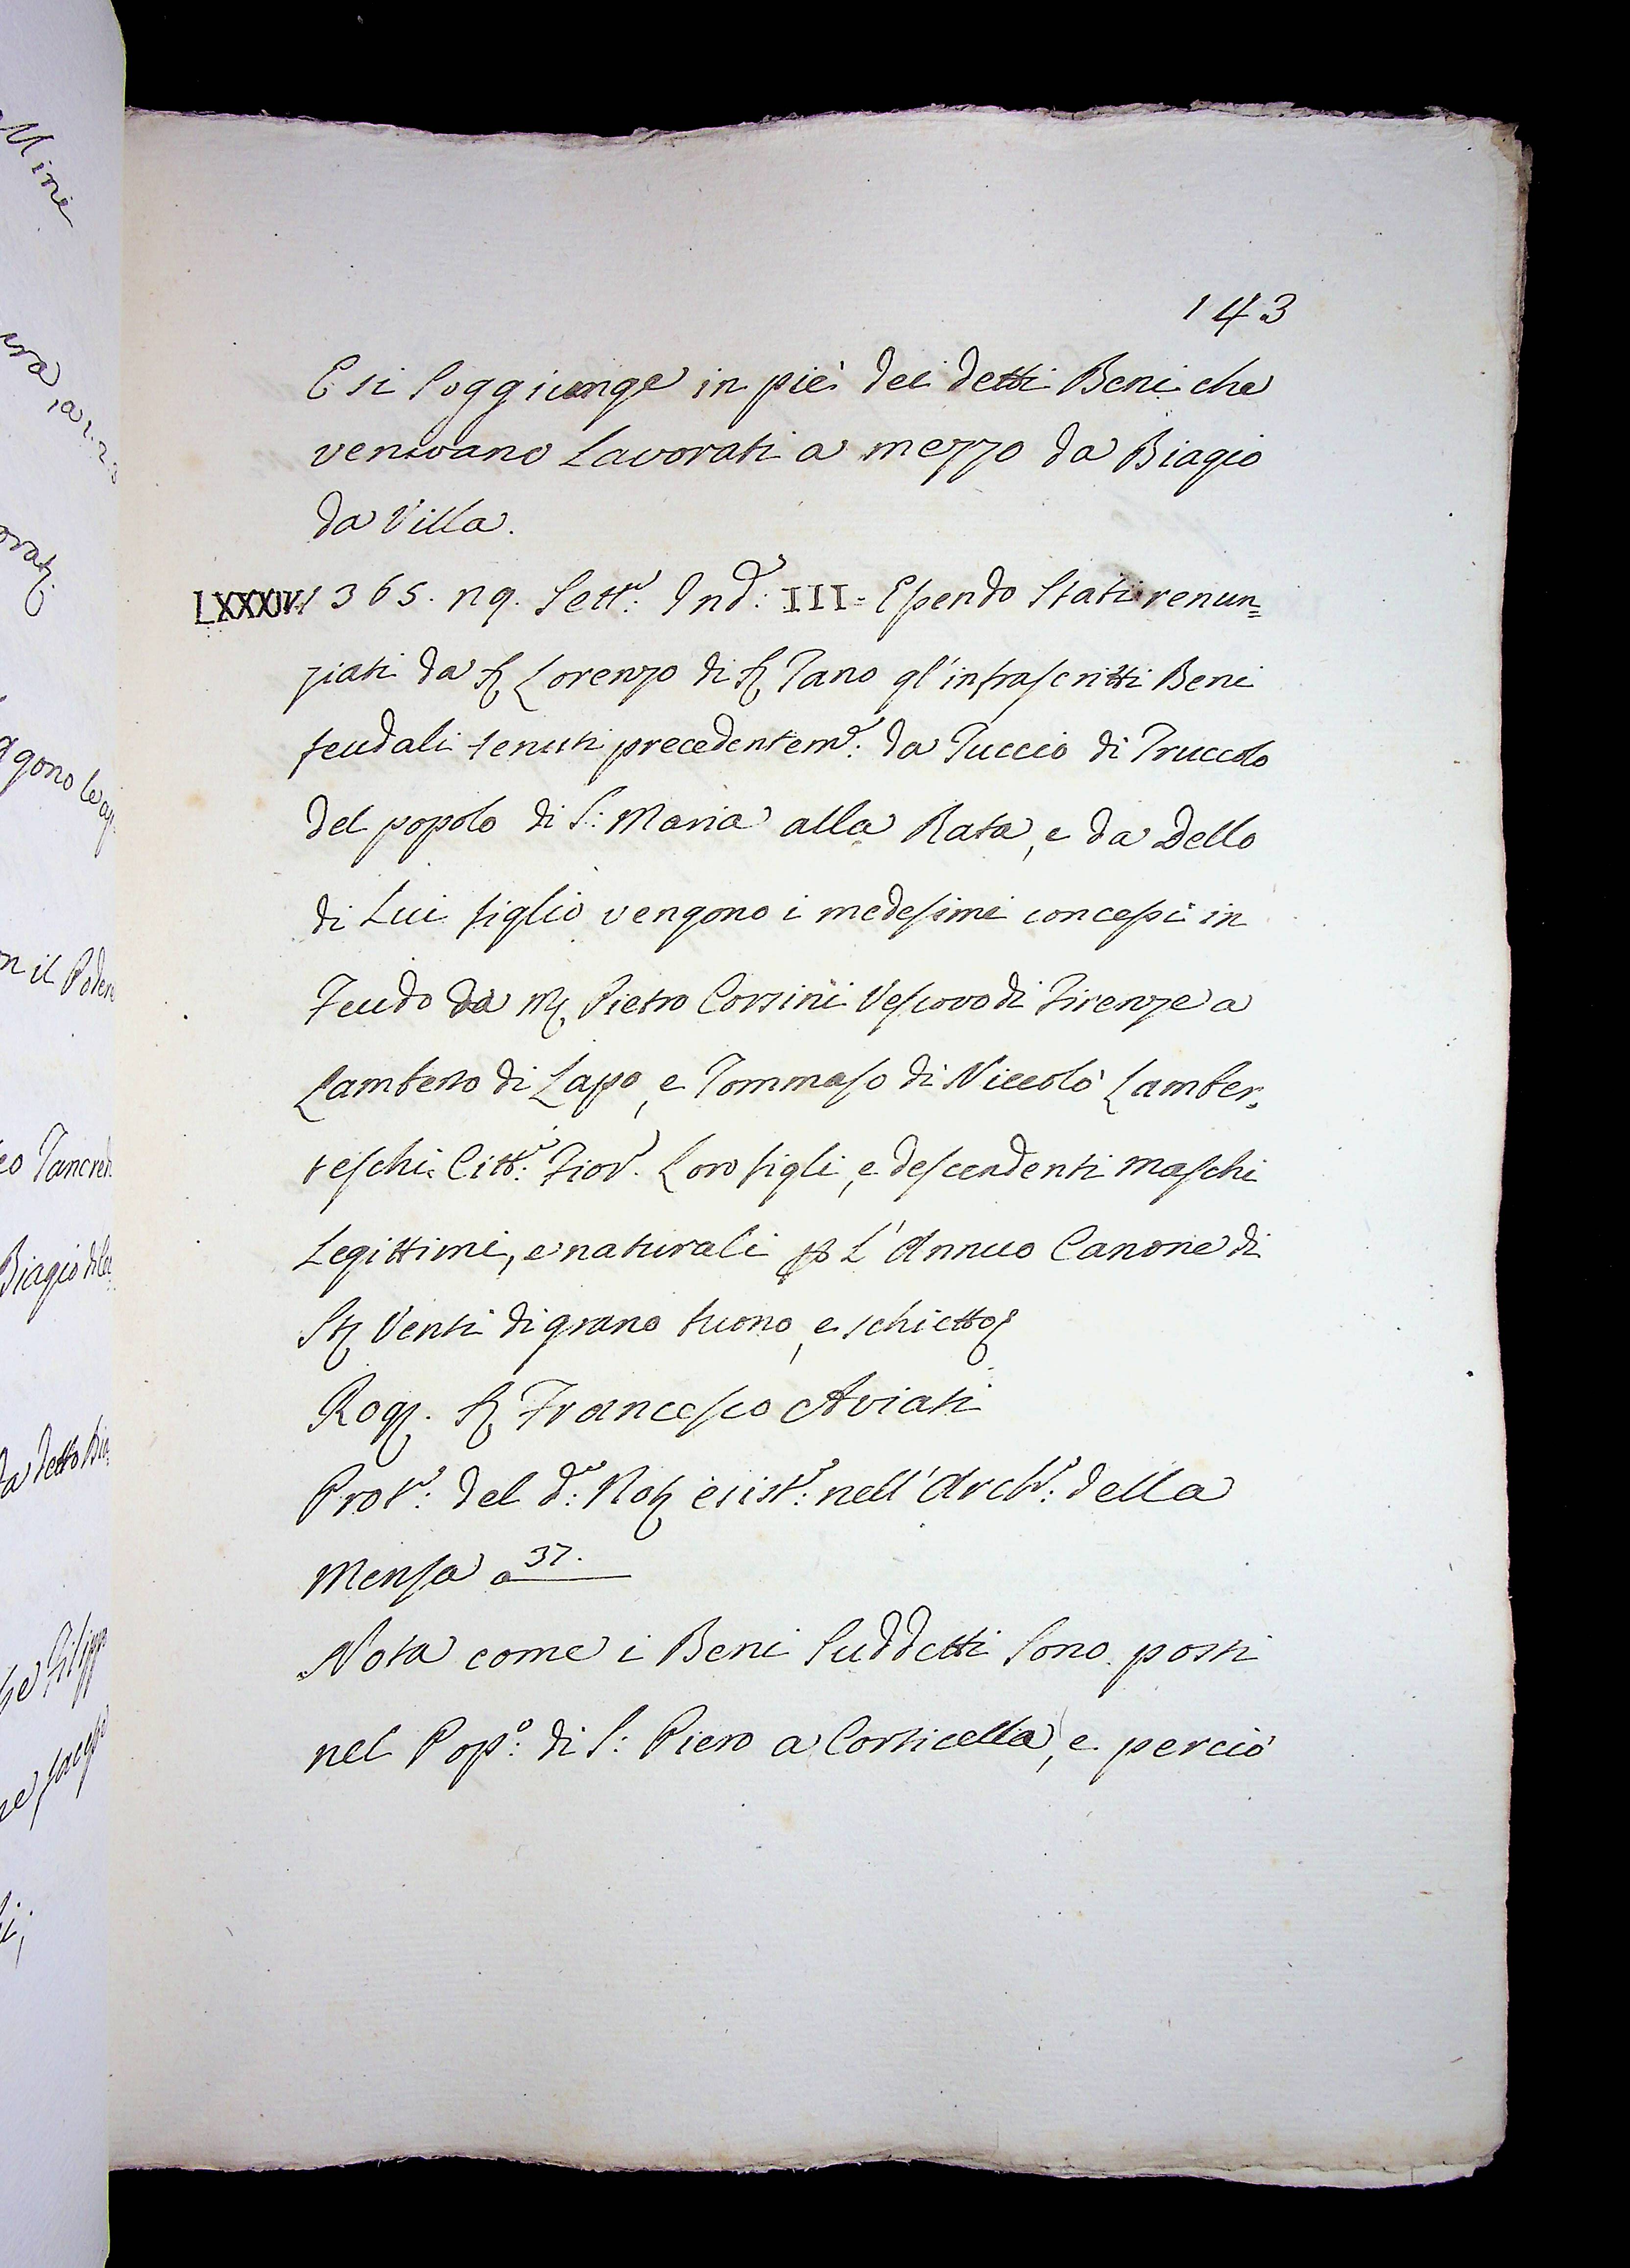 143
E si Soggiunge in piè dei detti Beni che
venivano Lavorati a mezzo da Biagio
da Villa.
LXXXIV. 1365. 19. Sett.e: Ind.e: III= Essendo Stati renun=
ziati da S. Lorenzo di S. Tano gl'infrascritti Beni
feudali tenuti precedentem.e: da Tuccio di Truccolo
del popolo di S: Maria alla Rata, e da Dello
di Lui figlio vengono i medesimi concessi in
Feudo da M. Pietro Corsini Vescovo di Firenze a
Lamberto di Lapo, e Tommaso di Niccolò Lamber=
teschi Citt.i: Fior.i Loro figli, e descendenti maschi
Legittimi, e naturali p L'Annuo Canone di
St. Venti di grano buono, e schietto
Rog. S. Francesco Aviati
Prot.o: del d.o: Not. esist.e: nell'Arch.o: della
Mensa a 37.
Nota come i Beni Suddetti Sono posti
nel Pop.o: di S: Piero a Corticella, e perciò
Mine
gono le
n il Podere
o Tancred
Biagio di
a detto Bia
e Filipp